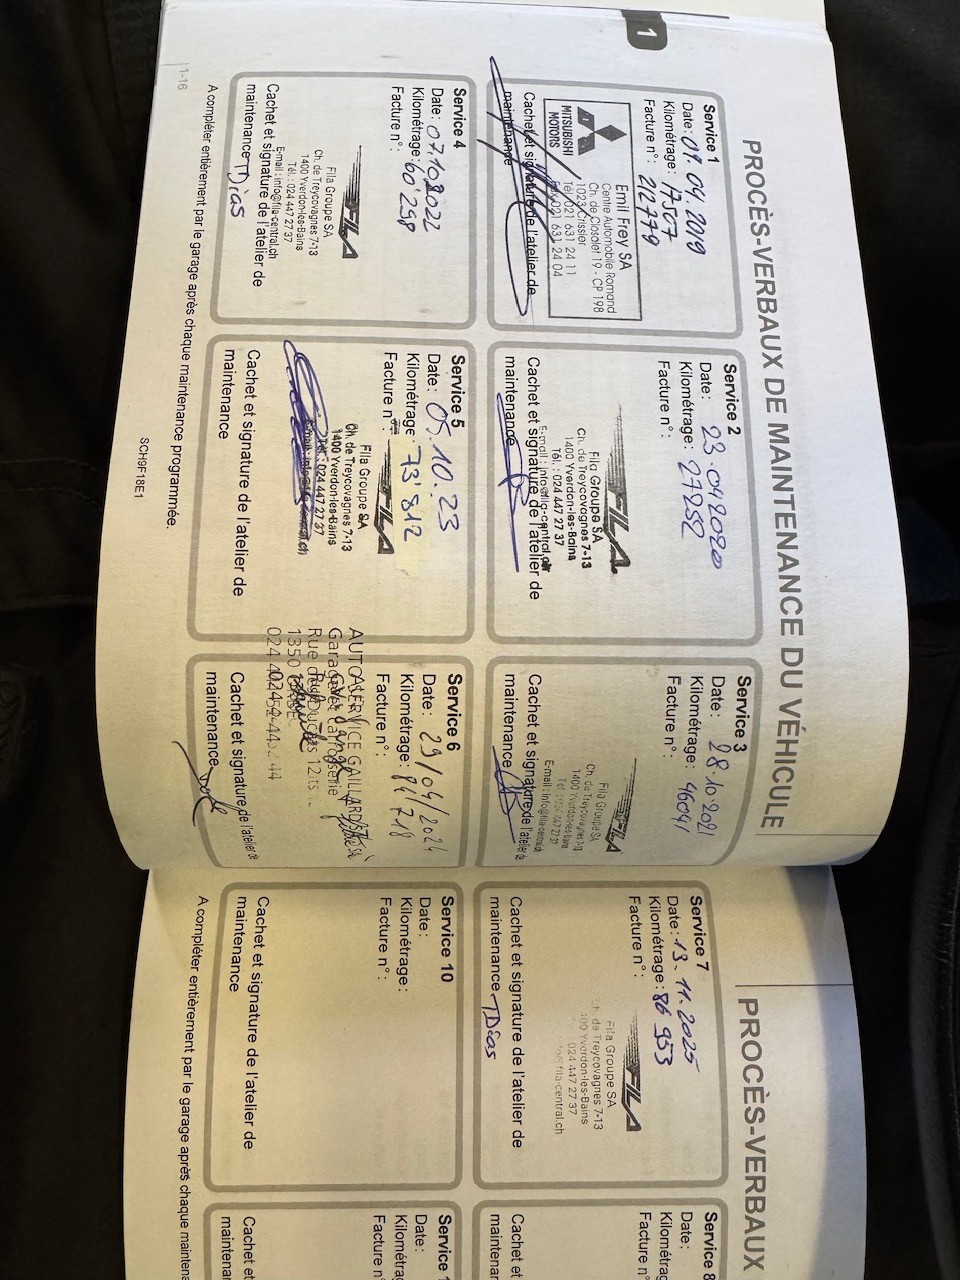 1
PROCÈS-VERBAUX DE MAINTENANCE DU VÉHICULE
Service 1
Date: 09.04.2019
Kilométrage: 17507
Facture n°: 212779
MITSUBISHI
MOTORS
Emil Frey SA
Centre Automobile Romand
Ch. de Closalet 19 - CP 198
1023 Crissier
Tél. 021 631 24 11
Fax 021 631 24 04
Cachet et signature de l'atelier de
maintenance
Service 2
Date: 23.04.2020
Kilométrage: 27252
Facture n°:
FILA
Fila Groupe SA
Ch. de Treycovagnes 7-13
1400 Yverdon-les-Bains
Tél. : 024 447 27 37
E-mail : info@fila-central.ch
Cachet et signature de l'atelier de
maintenance
Service 3
Date: 28.10.2021
Kilométrage: 46041
Facture n°:
FILA
Fila Groupe SA
Ch. de Treycovagnes 7-13
1400 Yverdon-les-Bains
Tél : 024 447 27 37
E-mail : info@fila-central.ch
Cachet et signature de l'atelier de
maintenance
Service 4
Date: 07.10.2022
Kilométrage: 60'298
Facture n°:
FILA
Fila Groupe SA
Ch. de Treycovagnes 7-13
1400 Yverdon-les-Bains
Tél. : 024 447 27 37
E-mail : info@fila-central.ch
Cachet et signature de l'atelier de
maintenance TDias
Service 5
Date: 05.10.23
Kilométrage: 73'812
Facture n°:
FILA
Fila Groupe SA
Ch. de Treycovagnes 7-13
1400 Yverdon-les-Bains
Tél. : 024 447 27 37
E-mail: info@fila-central.ch
Cachet et signature de l'atelier de
maintenance
Service 6
Date: 29/04/2024
Kilométrage: 81718
Facture n°:
AUTOASERVICE GAILLARD
Garage et Carrosserie
Rue des Ducats 12
1350
024
Cachet et signature de l'atelier de
maintenance
A compléter entièrement par le garage après chaque maintenance programmée.
1-16
SCH9F18E1
PROCÈS-VERBAUX
Service 7
Date: 13.11.2025
Kilométrage: 86 953
Facture n°:
FILA
Fila Groupe SA
Ch. de Treycovagnes 7-13
1400 Yverdon-les-Bains
024 447 27 37
fila-central.ch
Cachet et signature de l'atelier de
maintenance TDias
Service 8
Date:
Kilométrage
Facture n°
Cachet et
maintenan
Service 10
Date:
Kilométrage:
Facture n°:
Cachet et signature de l'atelier de
maintenance
Service 1
Date:
Kilométrag
Facture n°
Cachet et
maintenan
A compléter entièrement par le garage après chaque maintena